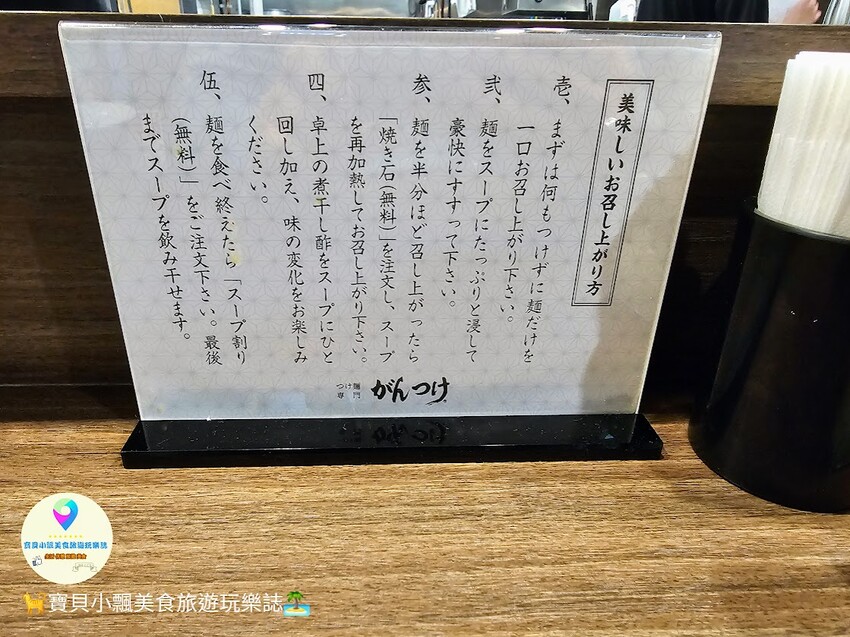 美味しいお召し上がり方
壱、まずは何もつけずに麺だけを
一口お召し上がり下さい。
弐、麺をスープにたっぷりと浸して
豪快にすすって下さい。
参、麺を半分ほど召し上がったら
「焼き石(無料)」を注文し、スープ
を再加熱してお召し上がり下さい。
四、卓上の煮干し酢をスープにひと
回し加え、味の変化をお楽しみ
ください。
伍、麺を食べ終えたら「スープ割り
(無料)」をご注文下さい。最後
までスープを飲み干せます。
つけ麺
専門
がんつけ
寶貝小飄美食旅遊玩樂誌
寶貝小飄美食旅遊玩樂誌